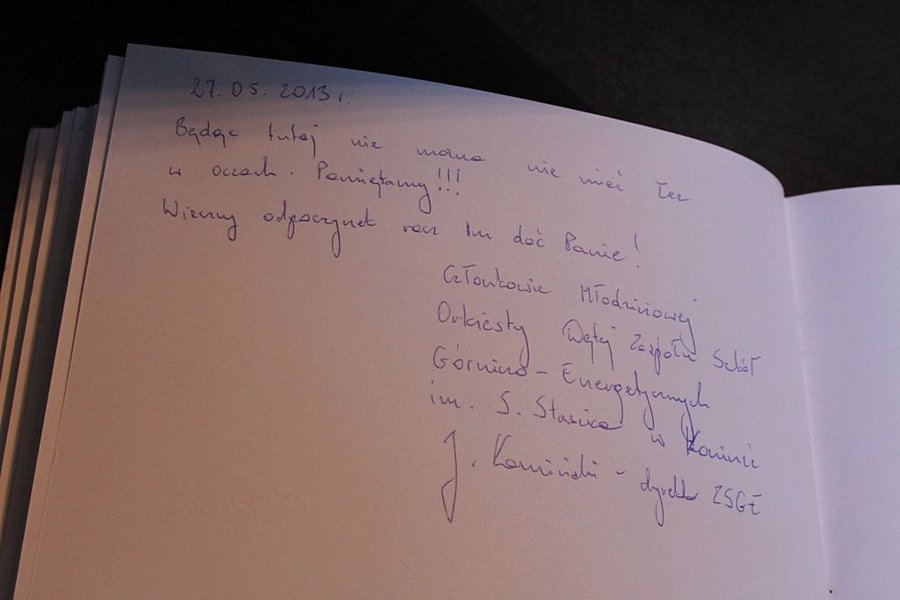 27.05.2013 r.
Będąc tutaj nie można nie mieć łez
w oczach. Pamiętamy!!!
Wieczny odpoczynek racz Im dać Panie!
Członkowie Młodzieżowej
Orkiestry Dętej Zespołu Szkół
Górniczo - Energetycznych
im. S. Staszica w Koninie
J. Kamiński - dyrektor ZSGE